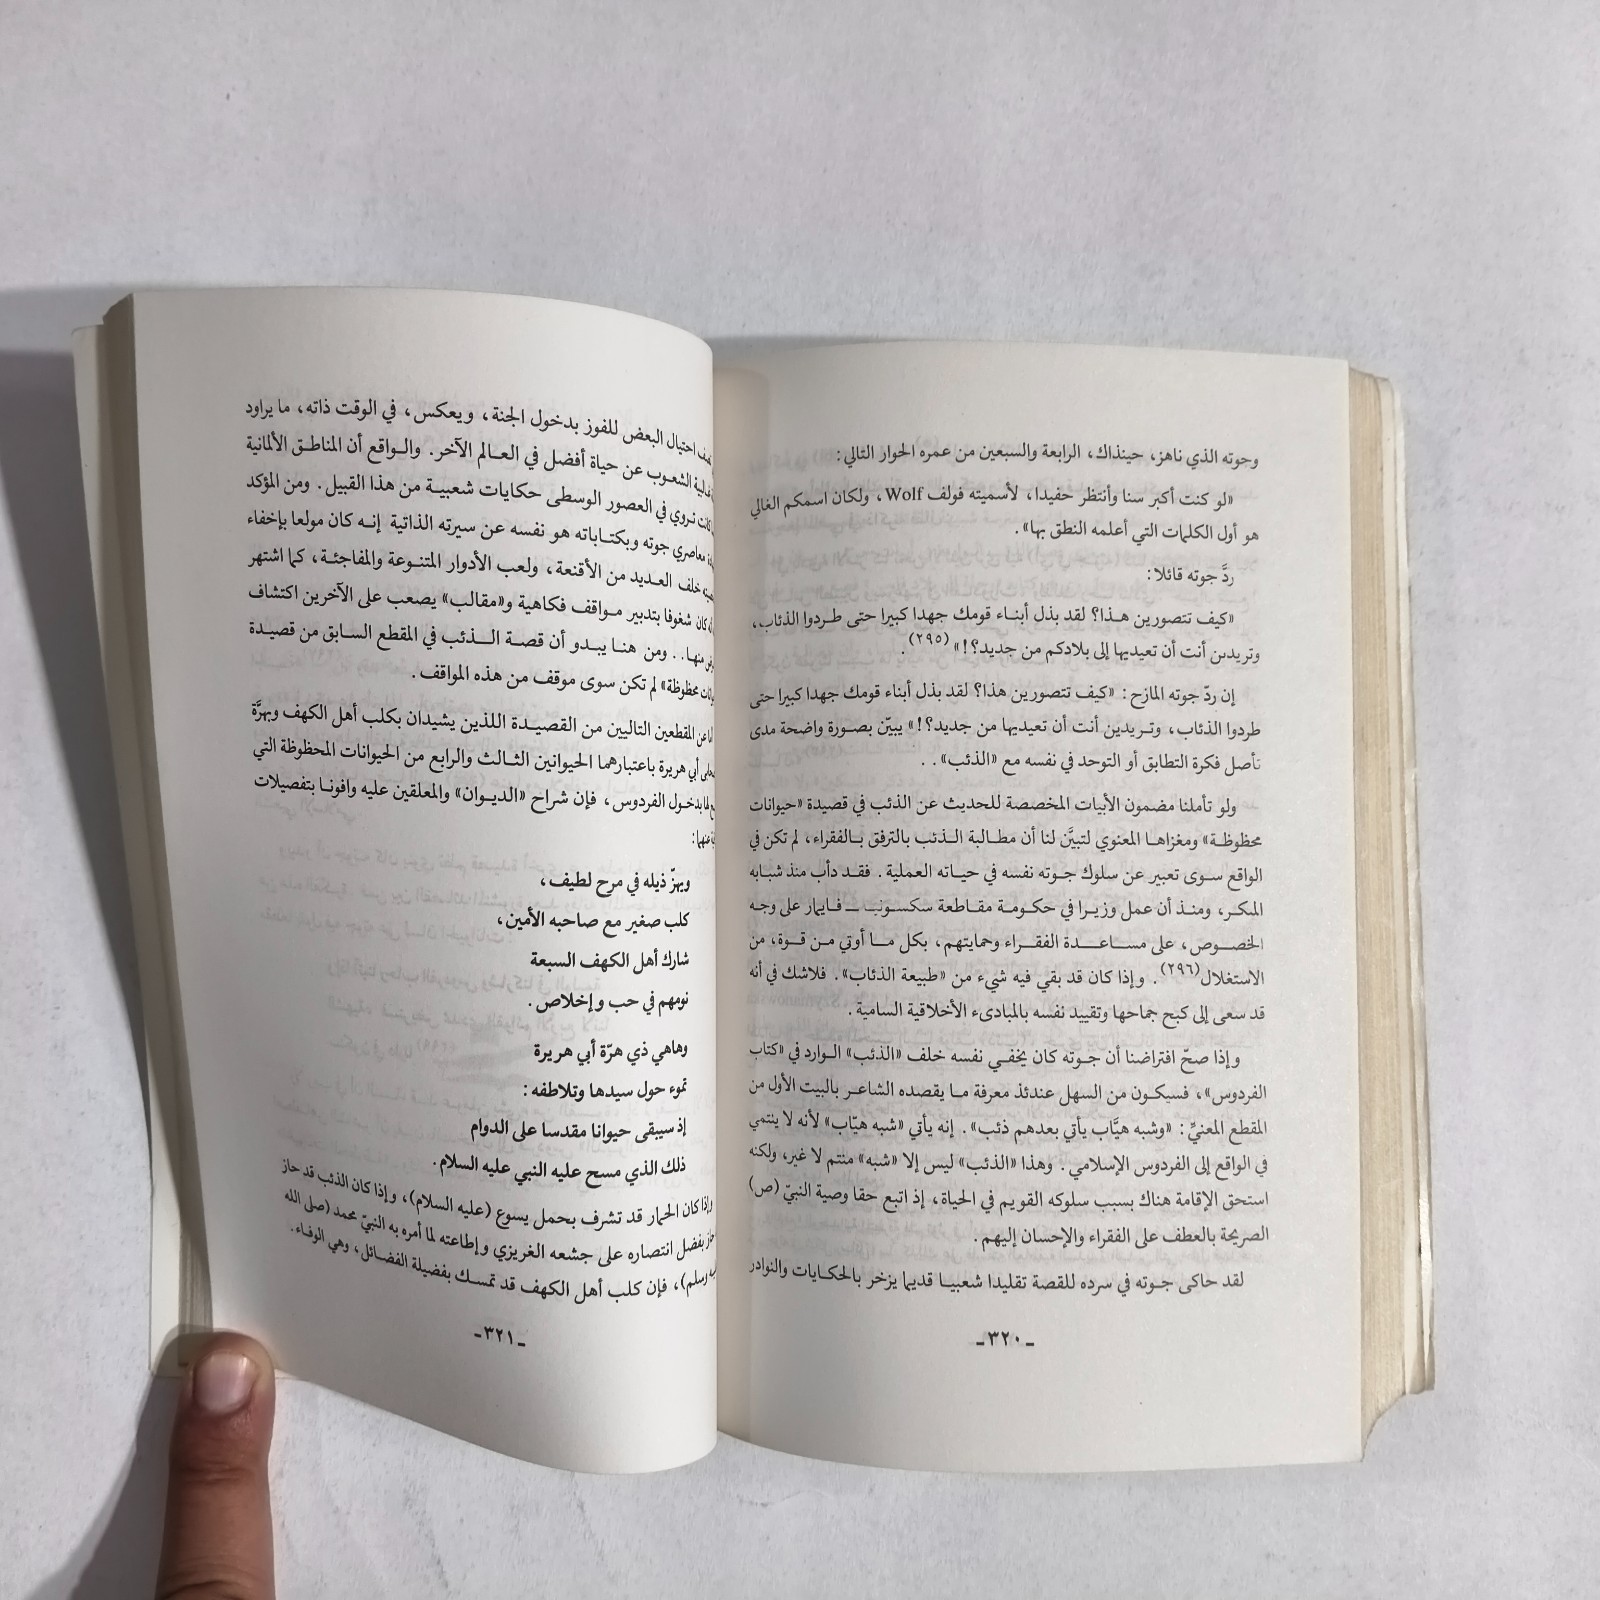 وجوته الذي ناهز، حينذاك، الرابعة والسبعين من عمره الحوار التالي:
«لو كنت أكبر سنا وأنتظر حفيدا، لأسميته فولف Wolf، ولكان اسمكم الغالي
هو أول الكلمات التي أعلمه النطق بها».
ردَّ جوته قائلا:
«كيف تتصورين هذا؟ لقد بذل أبناء قومك جهدا كبيرا حتى طردوا الذئاب،
وتريدين أنت أن تعيديها إلى بلادكم من جديد؟!» (٢٩٥).
إن ردّ جوته المازح: «كيف تتصورين هذا؟ لقد بذل أبناء قومك جهدا كبيرا حتى
طردوا الذئاب، وتريدين أنت أن تعيديها من جديد؟!» يبيّن بصورة واضحة مدى
تأصل فكرة التطابق أو التوحد في نفسه مع «الذئب»..
ولو تأملنا مضمون الأبيات المخصصة للحديث عن الذئب في قصيدة «حيوانات
محظوظة» ومغزاها المعنوي لتبيَّن لنا أن مطالبة الذئب بالترفق بالفقراء، لم تكن في
الواقع سوى تعبير عن سلوك جوته نفسه في حياته العملية. فقد دأب منذ شبابه
المبكر، ومنذ أن عمل وزيرا في حكومة مقاطعة سكسونيا ــ فايمار على وجه
الخصوص، على مساعدة الفقراء وحمايتهم، بكل ما أوتي من قوة، من
الاستغلال (٢٩٦). وإذا كان قد بقي فيه شيء من «طبيعة الذئاب». فلاشك في أنه
قد سعى إلى كبح جماحها وتقييد نفسه بالمبادىء الأخلاقية السامية.
وإذا صحّ افتراضنا أن جوته كان يخفي نفسه خلف «الذئب» الوارد في «كتاب
الفردوس»، فسيكون من السهل عندئذ معرفة ما يقصده الشاعر بالبيت الأول من
المقطع المعنيِّ: «وشبه هيَّاب يأتي بعدهم ذئب». إنه يأتي «شبه هيّاب» لأنه لا ينتمي
في الواقع إلى الفردوس الإسلامي. وهذا «الذئب» ليس إلا «شبه» منتم لا غير، ولكنه
استحق الإقامة هناك بسبب سلوكه القويم في الحياة، إذ اتبع حقا وصية النبيّ (ص)
الصريحة بالعطف على الفقراء والإحسان إليهم.
لقد حاكى جوته في سرده للقصة تقليدا شعبيا قديما يزخر بالحكايات والنوادر
ـ ٣٢٠ ـ
احتيال البعض للفوز بدخول الجنة، ويعكس، في الوقت ذاته، ما يراود
الشعوب عن حياة أفضل في العالم الآخر. والواقع أن المناطق الألمانية
كانت تروي في العصور الوسطى حكايات شعبية من هذا القبيل. ومن المؤكد
معاصري جوته وبكتاباته هو نفسه عن سيرته الذاتية إنه كان مولعا بإخفاء
خلف العديد من الأقنعة، ولعب الأدوار المتنوعة والمفاجئة، كما اشتهر
كان شغوفا بتدبير مواقف فكاهية و«مقالب» يصعب على الآخرين اكتشاف
منها.. ومن هنا يبدو أن قصة الذئب في المقطع السابق من قصيدة
محظوظة» لم تكن سوى موقف من هذه المواقف.
عن المقطعين التاليين من القصيدة اللذين يشيدان بكلب أهل الكهف وبهرَّة
أبي هريرة باعتبارهما الحيوانين الثالث والرابع من الحيوانات المحظوظة التي
بدخول الفردوس، فإن شراح «الديوان» والمعلقين عليه وافونا بتفصيلات
عنهما:
ويهزّ ذيله في مرح لطيف،
كلب صغير مع صاحبه الأمين،
شارك أهل الكهف السبعة
نومهم في حب وإخلاص.
وهاهي ذي هرّة أبي هريرة
تموء حول سيدها وتلاطفه:
إذ سيبقى حيوانا مقدسا على الدوام
ذلك الذي مسح عليه النبي عليه السلام.
وإذا كان الحمار قد تشرف بحمل يسوع (عليه السلام)، وإذا كان الذئب قد حاز
بفضل انتصاره على جشعه الغريزي وإطاعته لما أمره به النبيّ محمد (صلى الله
وسلم)، فإن كلب أهل الكهف قد تمسك بفضيلة الفضائل، وهي الوفاء.
ـ ٣٢١ ـ